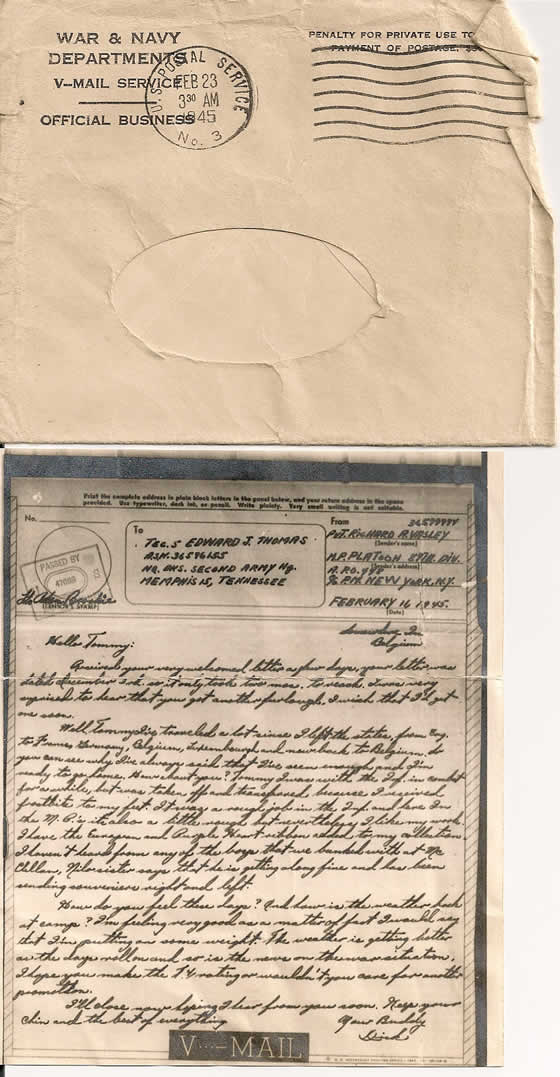 WAR & NAVY
DEPARTMENTS
V-MAIL SERVICE
OFFICIAL BUSINESS
U.S. POSTAL SERVICE
FEB 23
3 30 AM
1945
No. 3
PENALTY FOR PRIVATE USE TO
PAYMENT OF POSTAGE,
Print the complete address in plain block letters in the panel below, and your return address in the space
provided. Use typewriter, dark ink, or pencil. Write plainly. Very small writing is not suitable.
No.
To
TEC.5 EDWARD J. THOMAS
ASN. 36596155
HQ. SECOND ARMY HQ.
MEMPHIS 15, TENNESSEE
From
PVT. RICHARD
(Sender's name)
M.P. PLATOON DIV.
(Sender's address)
A.P.O.
% P.M. NEW YORK, N.Y.
FEBRUARY 16 1945.
(Date)
PASSED BY
(CENSOR'S STAMP)
Somewhere In
Belgium
Hello Tommy:
Received your very welcomed letter a few days, your letter was
dated December 2nd. so it only took two mos. to reach. I was very
surprised to hear that you got another furlough, I wish that I'd get
one soon.
Well Tommy I've traveled a lot since I left the states, from Eng.
to France, Germany, Belgium, Luxembourg and now back to Belgium, do
you can see why I've always said that I've seen enough and I'm
ready to go home. How about you? Tommy I was with the Inf. in combat
for a while, but was taken off and transferred because I received
frostbite to my feet. It was a rough job in the Inf. and here In
the M.P.'s it also a little rough but nevertheless I like my work.
I have the European and Purple Heart ribbon added to my collection.
I haven't heard from any of the boys that we bunked with at Mc
Clellan, sister says that he is getting along fine and has been
sending souveniers right and left.
How do you feel these days? And how is the weather back
at camp? I'm feeling very good as a matter of fact I would say
that I'm putting on some weight. The weather is getting better
as the days roll on and so is the news on the war situation.
I hope you make the T/4 rating or wouldn't you care for another
promotion.
I'll close now hoping I hear from you soon. Keep your
chin and the best of everything
Your Buddy
Dick
V···—MAIL